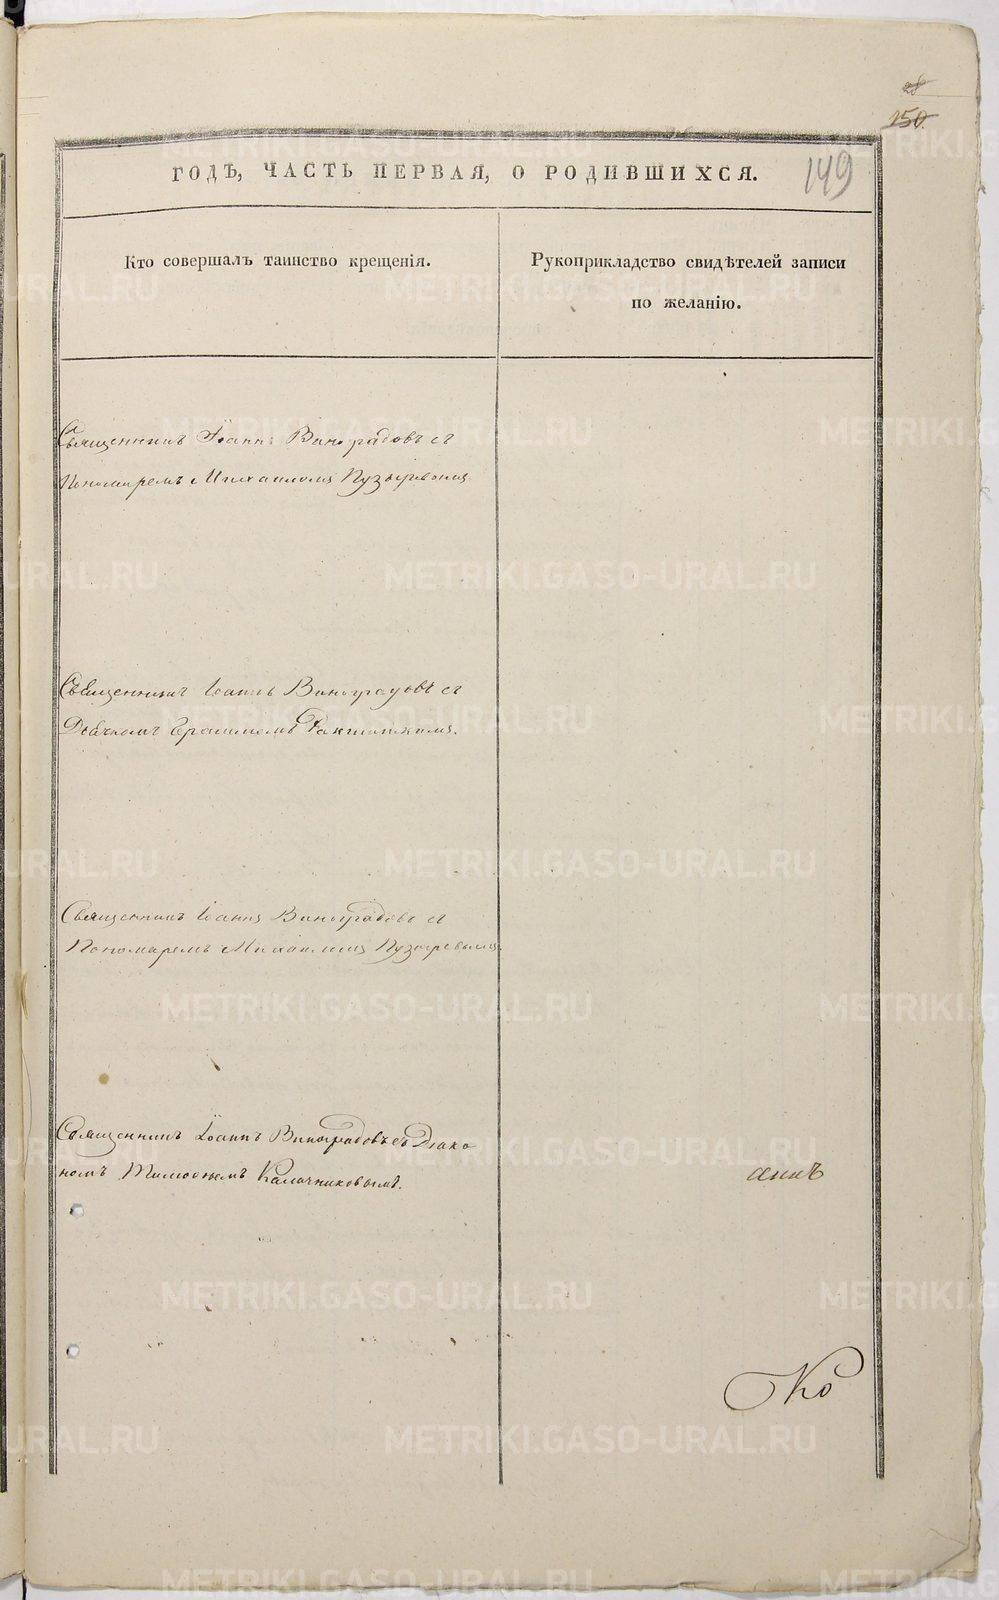 28
150
149
ГОДЪ, ЧАСТЬ ПЕРВАЯ, О РОДИВШИХСЯ.
Кто совершалъ таинство крещенія.
Рукоприкладство свидѣтелей записи
по желанію.
Священникъ Іоаннъ Виноградовъ съ
Пономаремъ Михаиломъ Пузыревымъ
Священникъ Іоаннъ Виноградовъ съ
Дьячкомъ
Священникъ Іоаннъ Виноградовъ съ
Пономаремъ Михаиломъ Пузыревымъ
Священникъ Іоаннъ Виноградовъ съ Діако
номъ Тимоѳеемъ Калачниковымъ.
Ко
METRIKI.GASO-URAL.RU